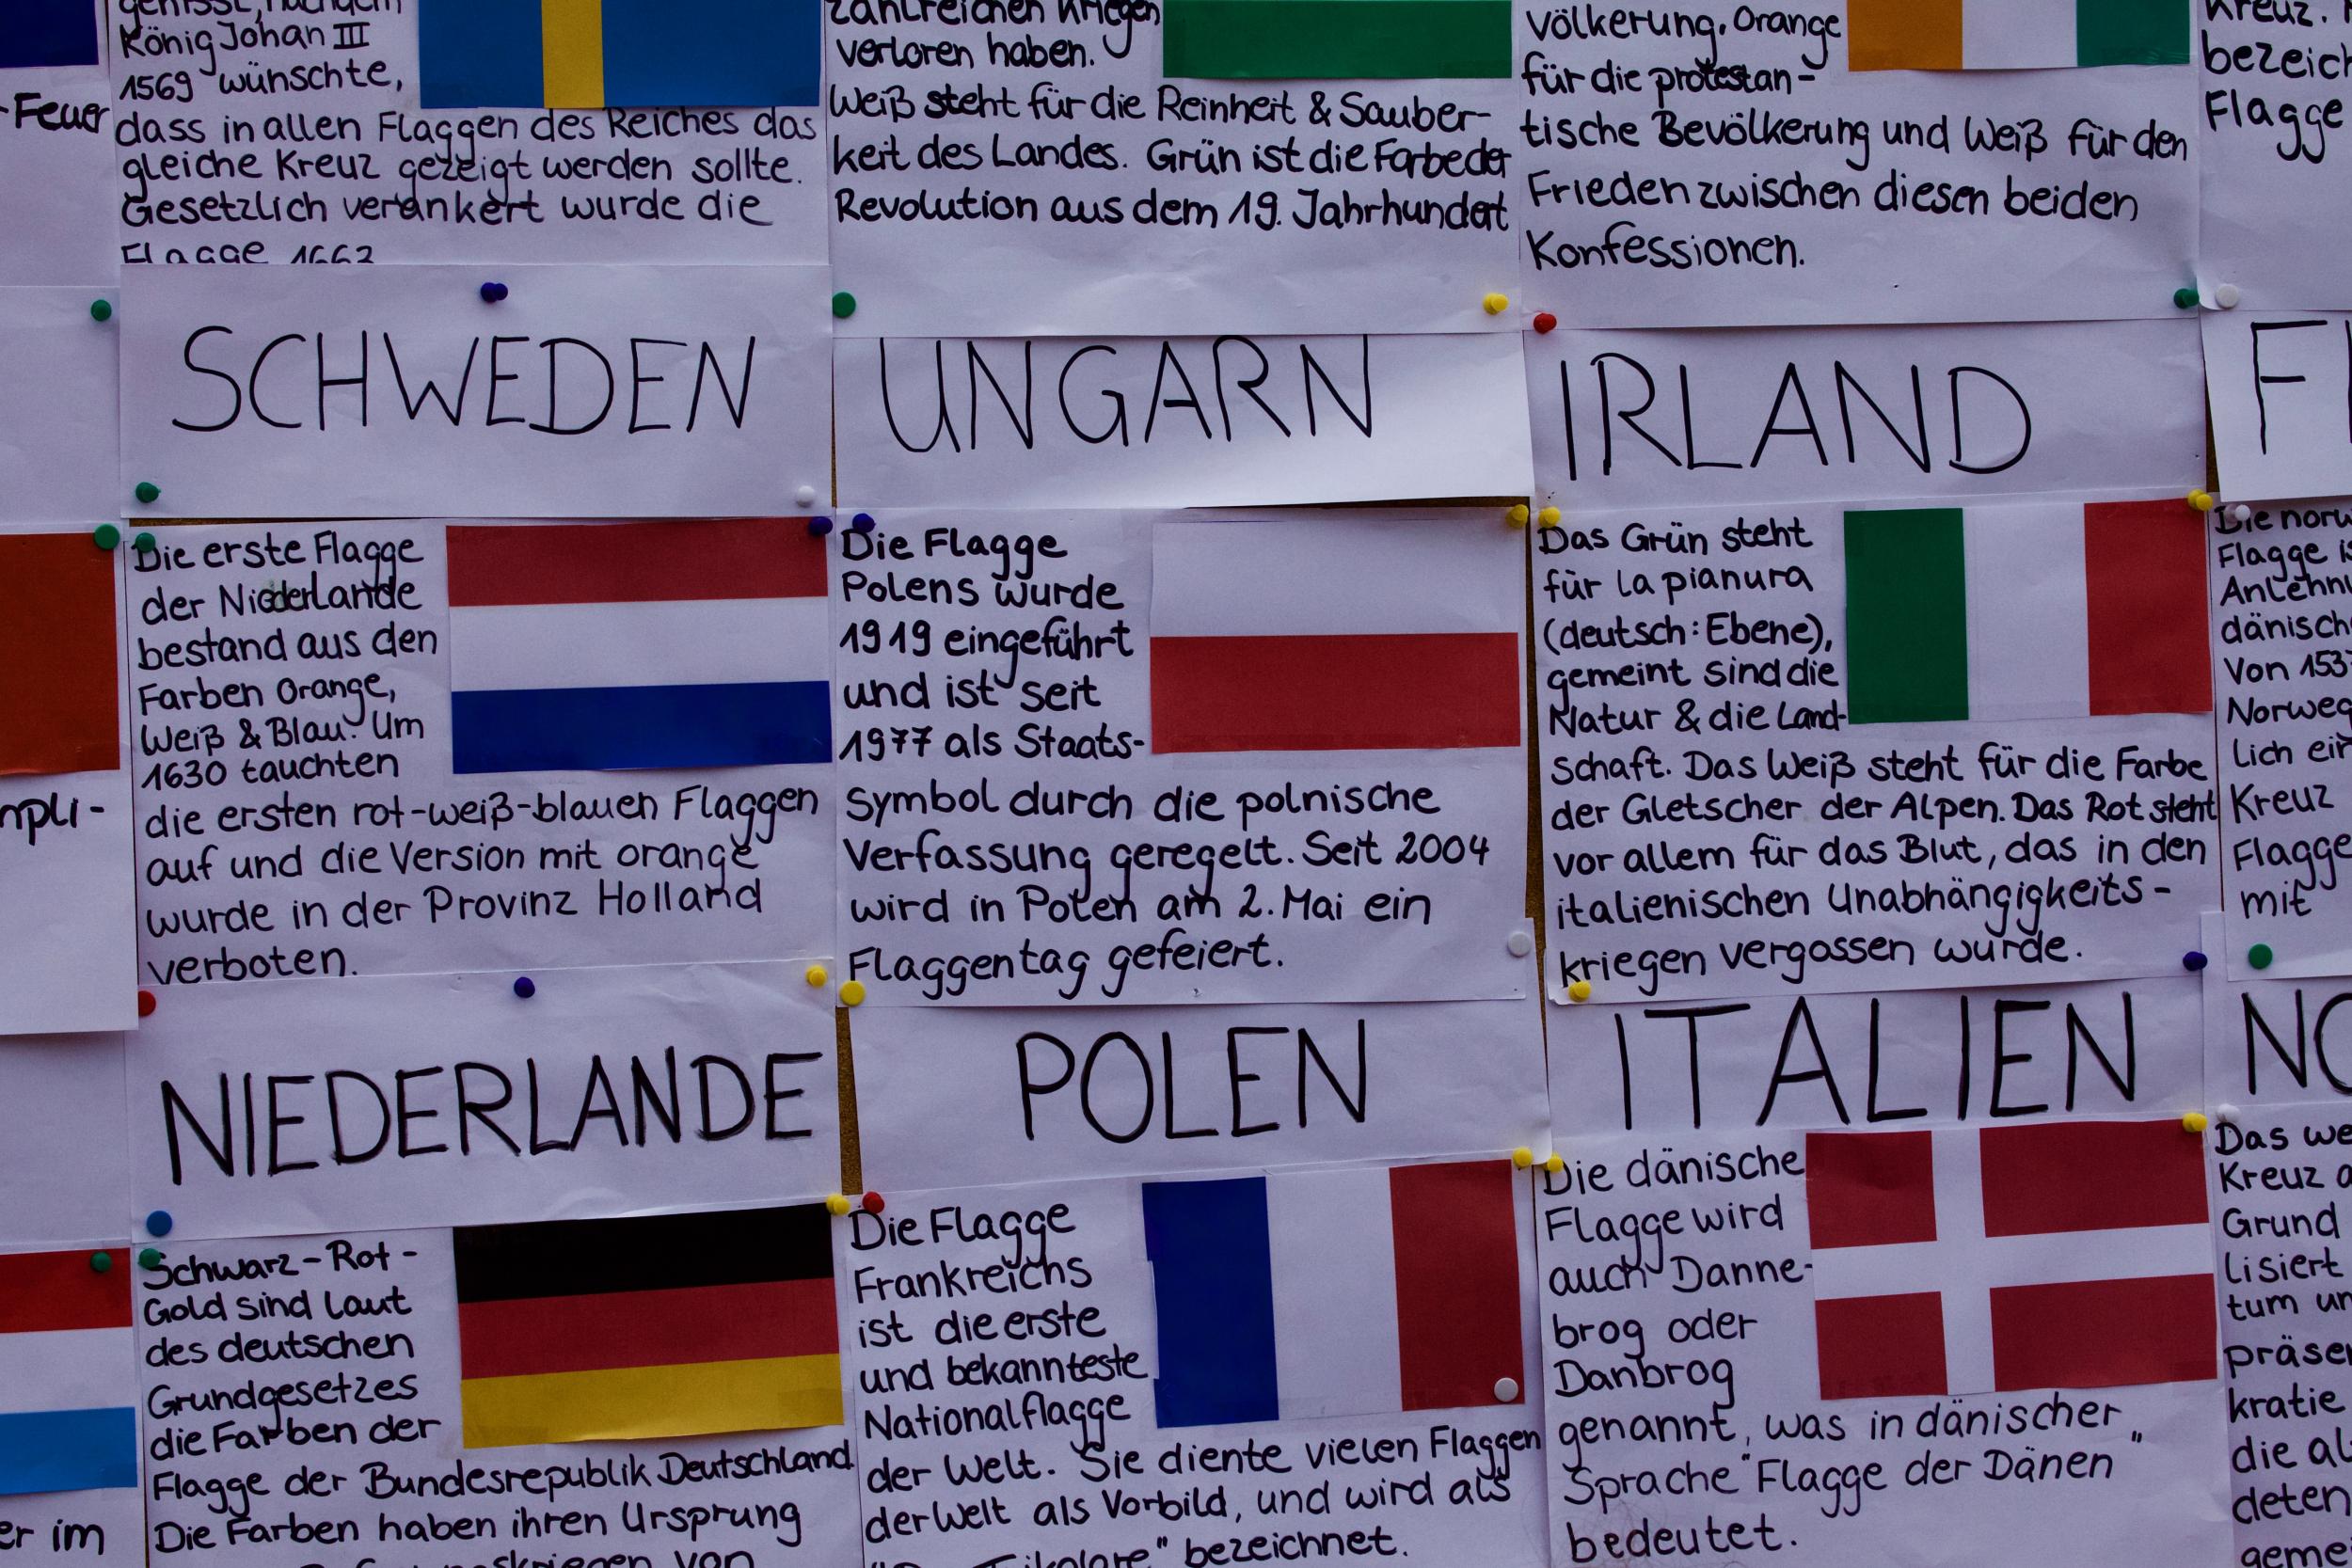 König Johan III
1569 wünschte,
dass in allen Flaggen des Reiches das
gleiche Kreuz gezeigt werden sollte.
Gesetzlich verankert wurde die
Flagge 1663
SCHWEDEN
zahlreichen Kriegen
verloren haben.
Weiß steht für die Reinheit & Sauber-
keit des Landes. Grün ist die Farbe der
Revolution aus dem 19. Jahrhundert
UNGARN
völkerung, Orange
für die protestan-
tische Bevölkerung und Weiß für den
Frieden zwischen diesen beiden
Konfessionen.
IRLAND
Kreuz.
bezeich
Flagge
F
-Feuer
Die erste Flagge
der Niederlande
bestand aus den
Farben Orange,
Weiß & Blau. Um
1630 tauchten
die ersten rot-weiß-blauen Flaggen
auf und die Version mit orange
wurde in der Provinz Holland
verboten.
NIEDERLANDE
Die Flagge
Polens wurde
1919 eingeführt
und ist seit
1977 als Staats-
symbol durch die polnische
Verfassung geregelt. Seit 2004
wird in Polen am 2. Mai ein
Flaggentag gefeiert.
POLEN
Das Grün steht
für la pianura
(deutsch: Ebene),
gemeint sind die
Natur & die Land-
schaft. Das Weiß steht für die Farbe
der Gletscher der Alpen. Das Rot steht
vor allem für das Blut, das in den
italienischen Unabhängigkeits-
kriegen vergossen wurde.
ITALIEN
Die norw
Flagge is
Anlehnu
dänisch
Von 1537
Norweg
lich ein
Kreuz
Flagge
mit
NO
npli-
Schwarz-Rot-
Gold sind laut
des deutschen
Grundgesetzes
die Farben der
Flagge der Bundesrepublik Deutschland
Die Farben haben ihren Ursprung
von
Die Flagge
Frankreichs
ist die erste
und bekannteste
Nationalflagge
der Welt. Sie diente vielen Flaggen
der Welt als Vorbild, und wird als
bezeichnet.
Die dänische
Flagge wird
auch Danne-
brog oder
Danbrog
genannt, was in dänischer
Sprache "Flagge der Dänen"
bedeutet.
Das we
Kreuz a
Grund
lisiert
tum un
präsen
kratie
die al
deten
geme
er im